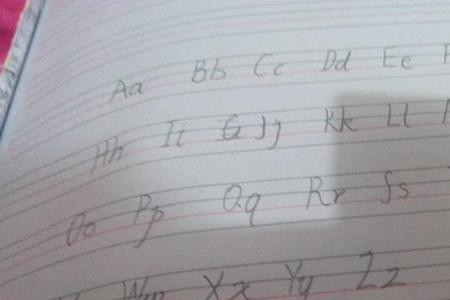 Aa Bb Cc Dd Ee
Hh Ii Jj Kk Ll
Oo Pp Qq Rr Ss
Xx Yy Zz